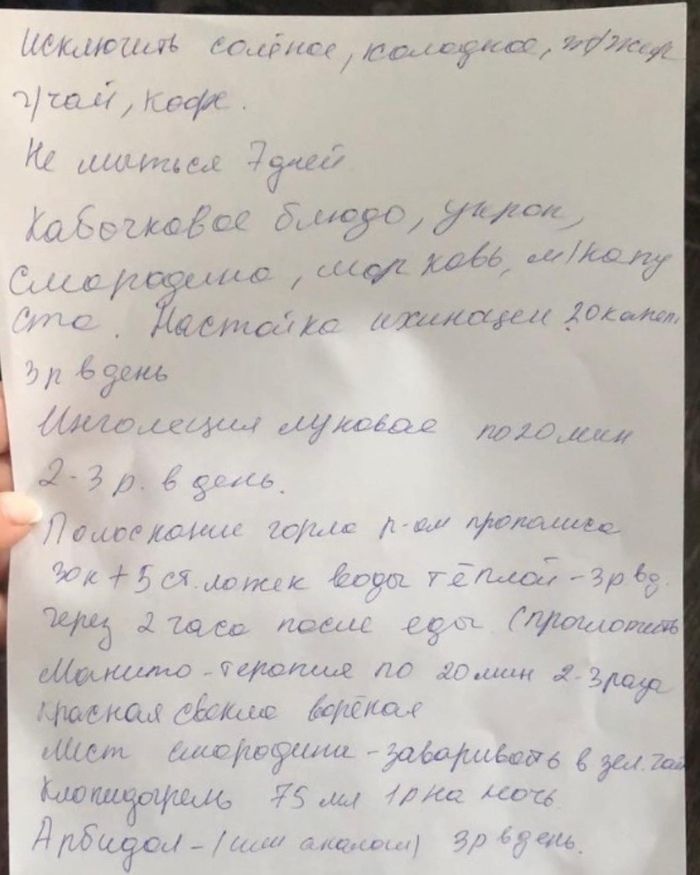 Исключить солёное, холодное, ж/жер
ч/чай, кофе.
Не мыться 7 дней
Кабочковое блюдо, укроп,
Смородина, морковь, м/капу
ста. Настойка ихинацеи 20 капель
3р в день
Инголяция луковая по 20 мин
2-3 р. в день.
Полоскание горла р-ом прополиса
30к + 5 ст. ложек воды тёплой - 3р вд.
через 2 часа после еды (проглотить
Манито-терапия по 20 мин 2-3 раза
Красная свекла варёная
Лист смородины - заваривать в зел. чай
Клопидогрель 75 мл 1р на ночь
Арбидол - (или аналоги) 3р в день.